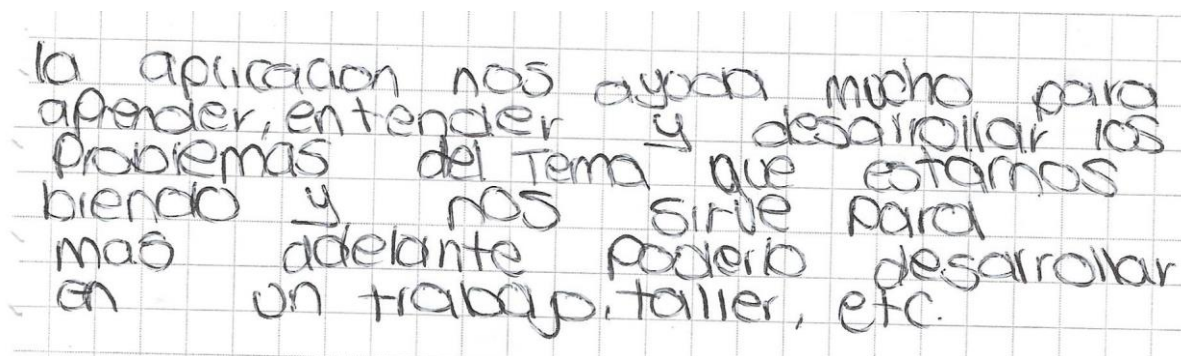 la aplicacion nos ayuda mucho para
aprender, entender y desarrollar los
problemas del Tema que estamos
biendo y nos sirve para
mas adelante poderlo desarrollar
en un trabajo, taller, etc.